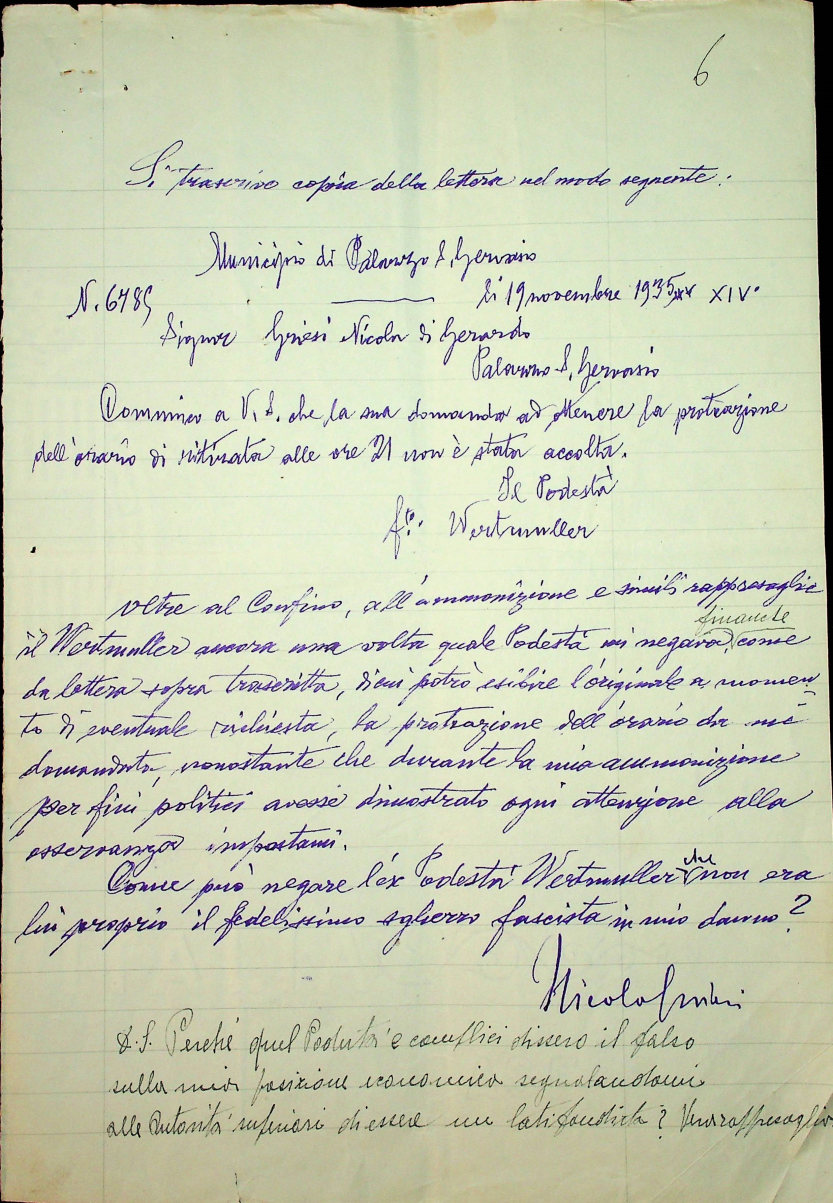 6
Si trascrive copia della lettera nel modo seguente:
Municipio di Palazzo S. Gervasio
N. 6785 li 19 novembre 1935 XIV°
Signor Griesi Nicola di Gerardo
Palazzo S. Gervasio
Comunico a V. S. che la sua domanda ad ottenere la protrazione
dell'orario di ritirata alle ore 21 non è stata accolta.
Il Podestà
fto. Wertmuller
Oltre al Confino, all'ammonizione e simili rappresaglie
il Wertmuller ancora una volta quale Podestà mi negava finanche come
da lettera sopra trascritta, di cui potrò esibire l'originale a momen-
to di eventuale richiesta, la protrazione dell'orario da me
domandata, nonostante che durante la mia ammonizione
per fini politici avessi dimostrato ogni attenzione alla
osservanza impostami.
Come può negare l'ex Podestà Wertmuller che non era
lui proprio il fedelissimo sgherro fascista in mio danno?
Nicola Griesi
P.S. Perché quel Podestà e complici dissero il falso
sulla mia posizione economica segnalandomi
alle Autorità superiori di essere un latifondista? Vera rappresaglia